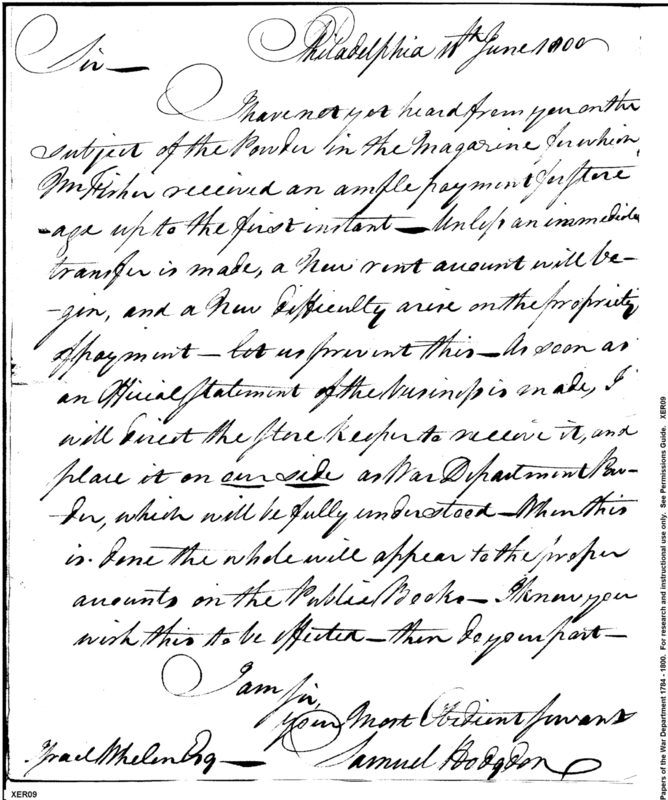 Philadelphia 11th June 1800
Sir —
I have not yet heard from you on the
subject of the Powder in the Magazine for which
Mr Fisher received an ample payment for store
-age up to the first instant — Unless an immediate
transfer is made, a New rent account will be-
-gin, and a New difficulty arise on the propriety
of payment — let us prevent this — As soon as
an Official statement of the business is made, I
will direct the store keeper to receive it, and
place it on our side as War Department Pow-
der, which will be fully understood — When this
is done the whole will appear to the proper
accounts on the Public Books — I know you
wish this to be effected — then do your part —
I am Sir,
your Most Obedient servant
Israel Whelen Esq —
Samuel Hodgdon
XER09
Papers of the War Department 1784 - 1800. For research and instructional use only. See Permissions Guide. XER09